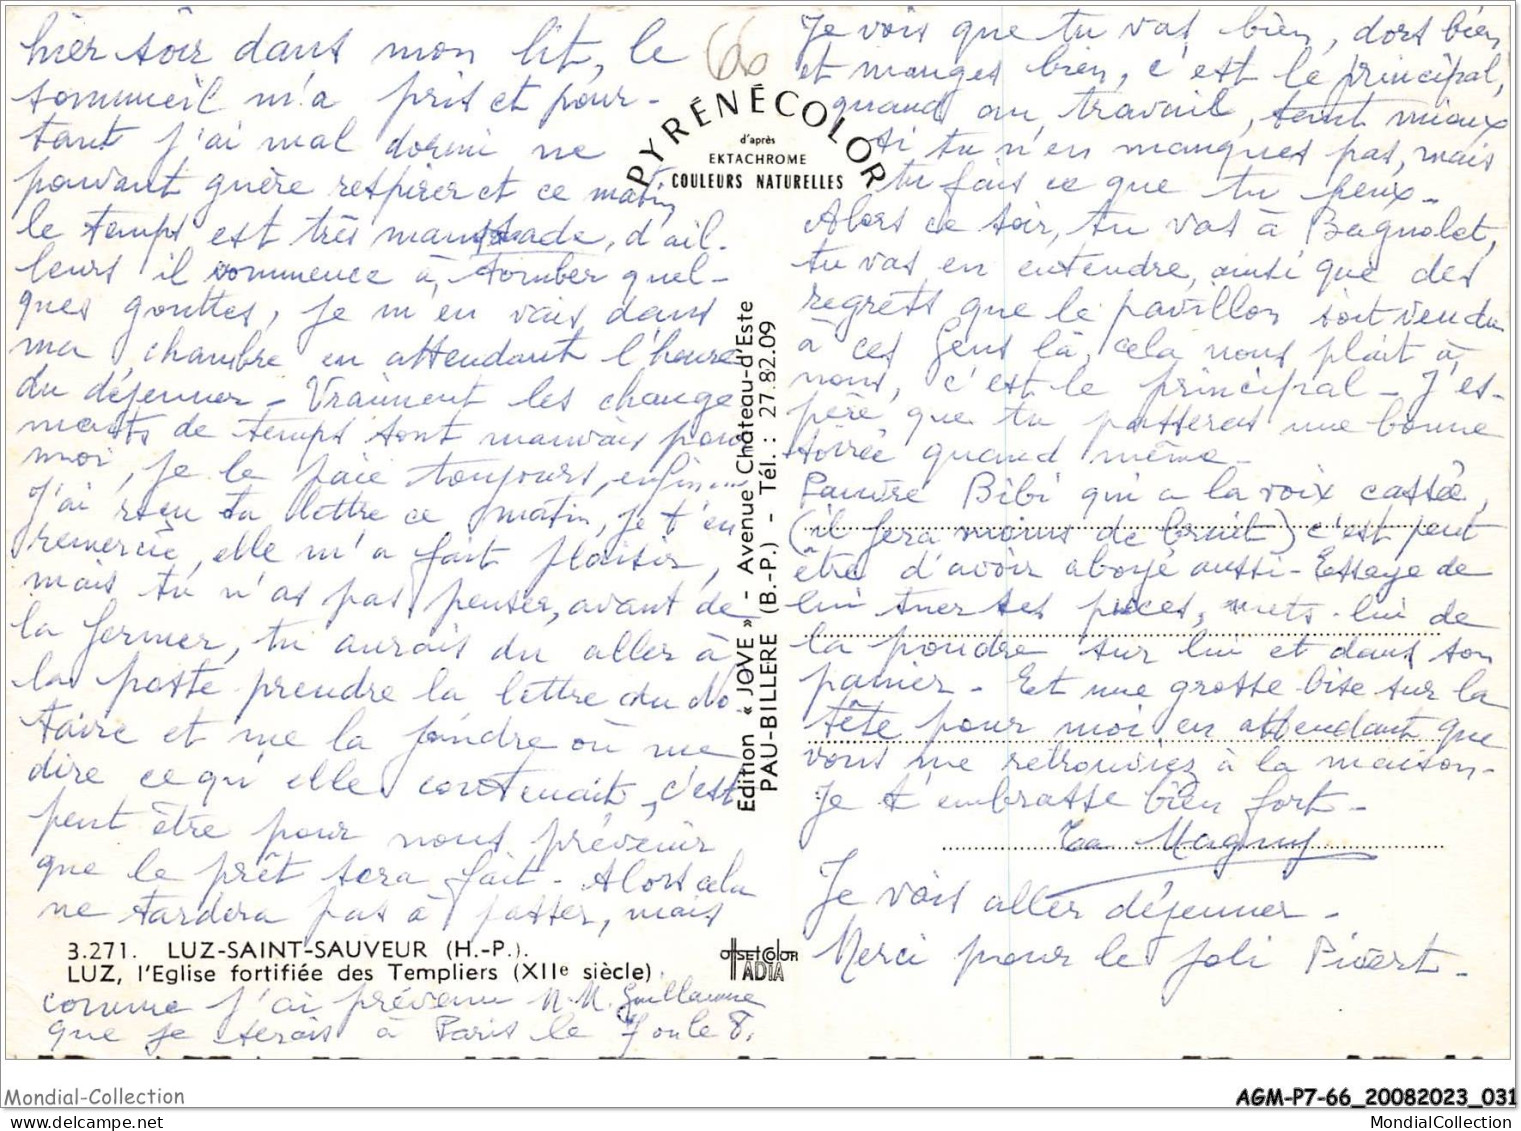 hier soir dans mon lit, le
sommeil m'a pris et pour-
tant j'ai mal dormi ne
pouvant guère respirer et ce matin
le temps est très maussade, d'ail-
leurs il commence à tomber quel-
ques gouttes, je m'en vais dans
ma chambre en attendant l'heure
du déjeuner - Vraiment les change
ments de temps sont mauvais pour
moi, je le paie toujours, enfin...
J'ai reçu ta lettre ce matin, je t'en
remercie, elle m'a fait plaisir,
mais tu n'as pas penser, avant de
la fermer, tu aurais du aller à
la poste prendre la lettre du No
taire et me la joindre ou me
dire ce qu'elle contenait, c'est
peut être pour nous prévenir
que le prêt sera fait - Alors cela
ne tardera pas à passer, mais
3.271. LUZ-SAINT-SAUVEUR (H.-P.).
LUZ, l'Eglise fortifiée des Templiers (XIIe siècle)
comme j'ai prévenu M.M. Guillaume
que je serais à Paris le 7 ou le 8.
66
PYRÉNÉCOLOR
d'après
EKTACHROME
COULEURS NATURELLES
Edition « JOVE » - Avenue Château-d'Este
PAU-BILLERE (B.-P.) - Tél. : 27.82.09
OffsetColor
IADIA
Je vois que tu vas bien, dors bien
et manges bien, c'est le principal,
quand au travail, tant mieux
si tu n'en manques pas, mais
tu fais ce que tu peux -
Alors ce soir, tu vas à Bagnolet,
tu vas en entendre, ainsi que des
regrets que le pavillon soit vendu
à ces gens là, cela nous plait à
nous, c'est le principal - J'es-
père que tu passeras une bonne
soirée quand même -
Pauvre Bibi qui a la voix cassée,
(il fera moins de bruit) c'est peut
être d'avoir aboyé aussi - Essaye de
lui tuer ses puces, mets-lui de
la poudre sur lui et dans son
panier - Et une grosse bise sur la
tête pour moi en attendant que
vous me retrouviez à la maison -
Je t'embrasse bien fort -
Ta Magny
Je vais aller déjeuner -
Merci pour le joli Pivert -
Mondial-Collection
AGM-P7-66_20082023_031
MondialCollection